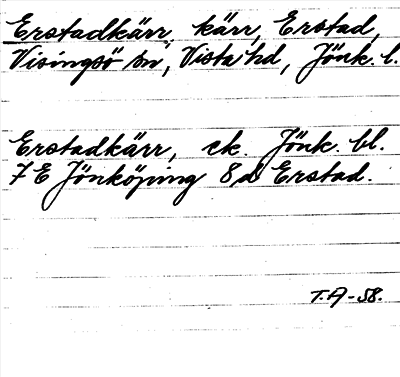 Erstadkärr, kärr, Erstad,
Visingsö sn, Vista hd, Jönk. l.
Erstadkärr, ek. Jönk. bl.
7 E Jönköping 8 d Erstad.
T.A-58.